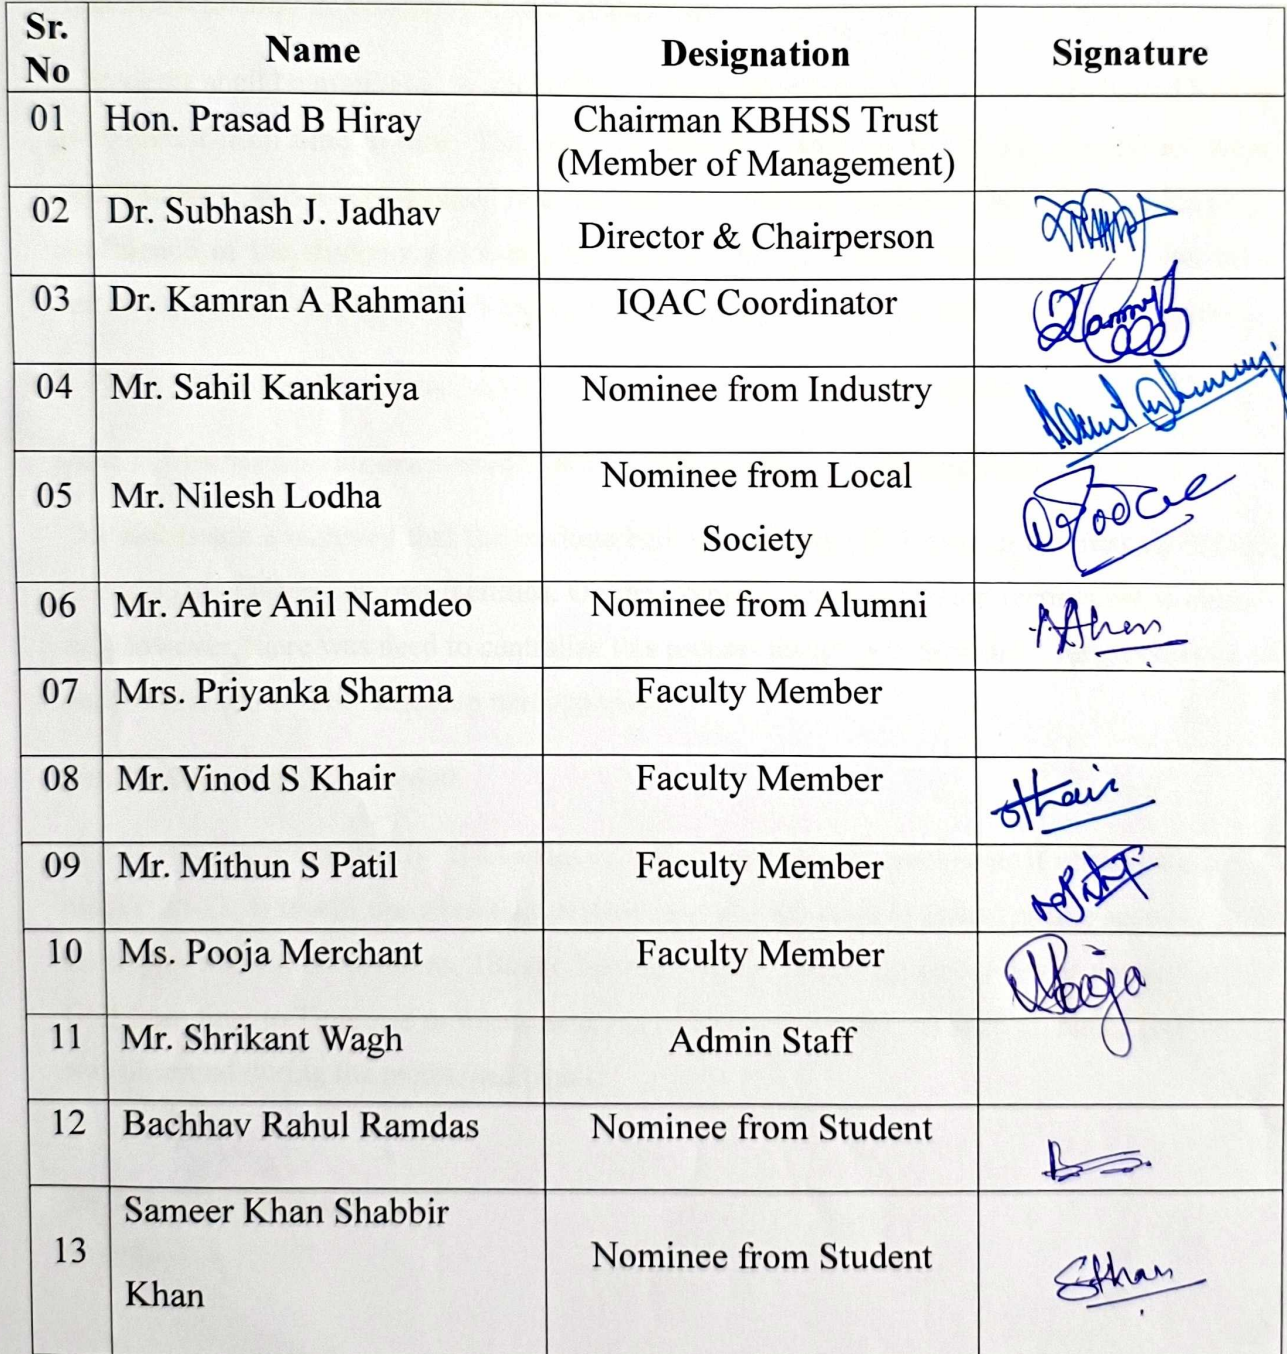 Sr. No Name Designation Signature
01 Hon. Prasad B Hiray Chairman KBHSS Trust
(Member of Management)
02 Dr. Subhash J. Jadhav Director & Chairperson
03 Dr. Kamran A Rahmani IQAC Coordinator
04 Mr. Sahil Kankariya Nominee from Industry
05 Mr. Nilesh Lodha Nominee from Local
Society
06 Mr. Ahire Anil Namdeo Nominee from Alumni
07 Mrs. Priyanka Sharma Faculty Member
08 Mr. Vinod S Khair Faculty Member
09 Mr. Mithun S Patil Faculty Member
10 Ms. Pooja Merchant Faculty Member Pooja
11 Mr. Shrikant Wagh Admin Staff
12 Bachhav Rahul Ramdas Nominee from Student
Sameer Khan Shabbir
13 Nominee from Student SKhan
Khan